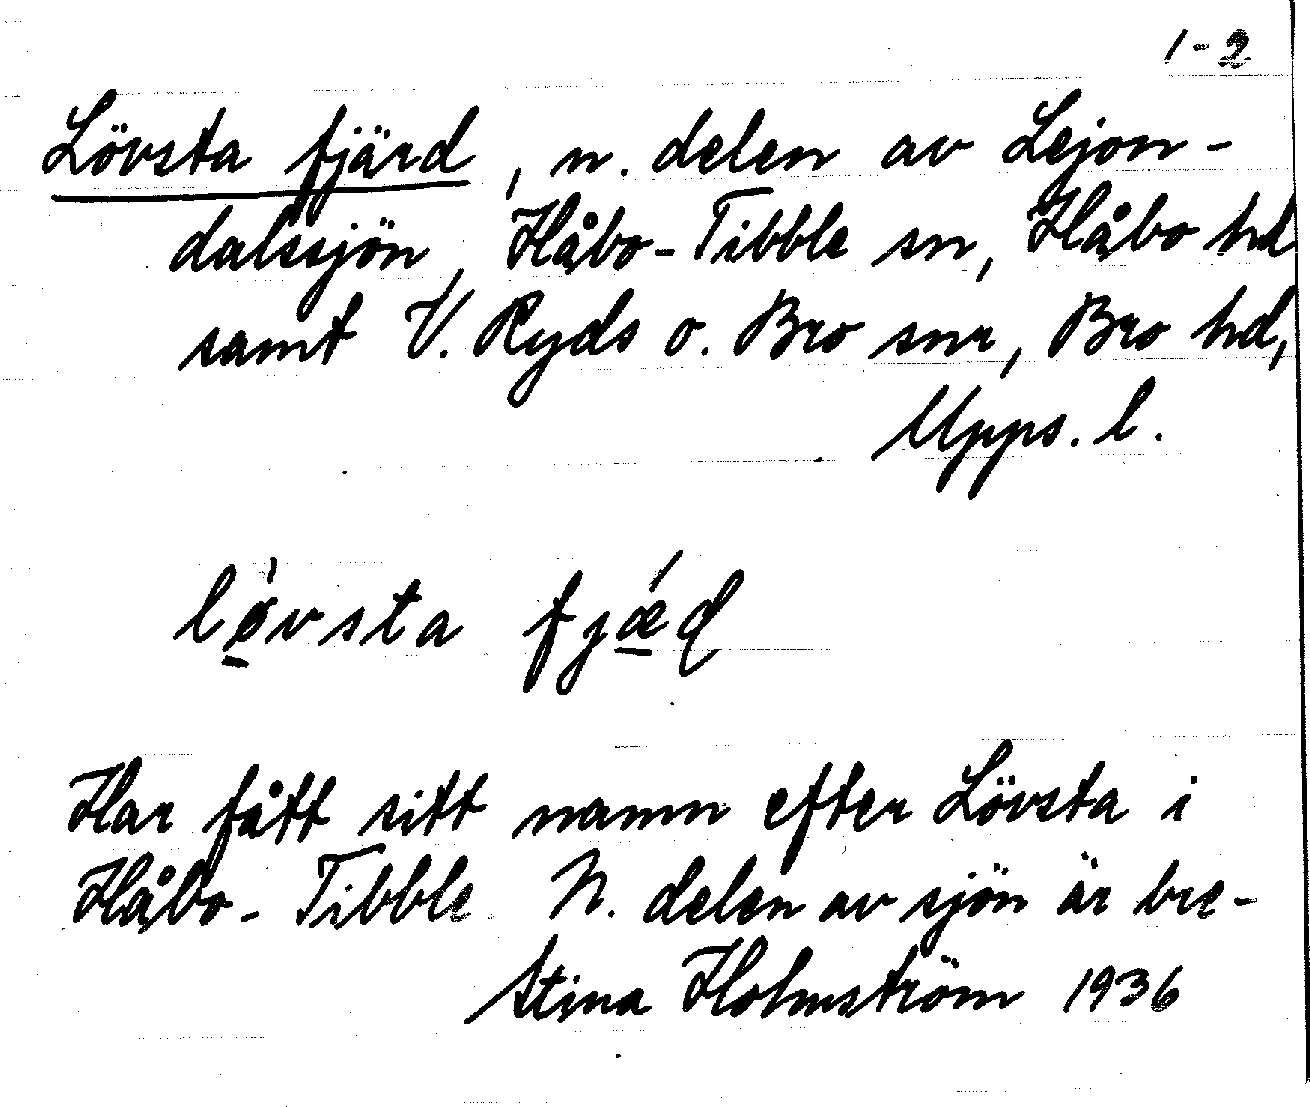 1-2
Lövsta fjärd, n. delen av Lejon-
dalssjön, Håbo-Tibble sn, Håbo hd
samt V. Ryds o. Bro snr, Bro hd,
Upps. l.
lø̀vsta fjǽḍ
Har fått sitt namn efter Lövsta i
Håbo-Tibble N. delen av sjön är bre-
Stina Holmström 1936